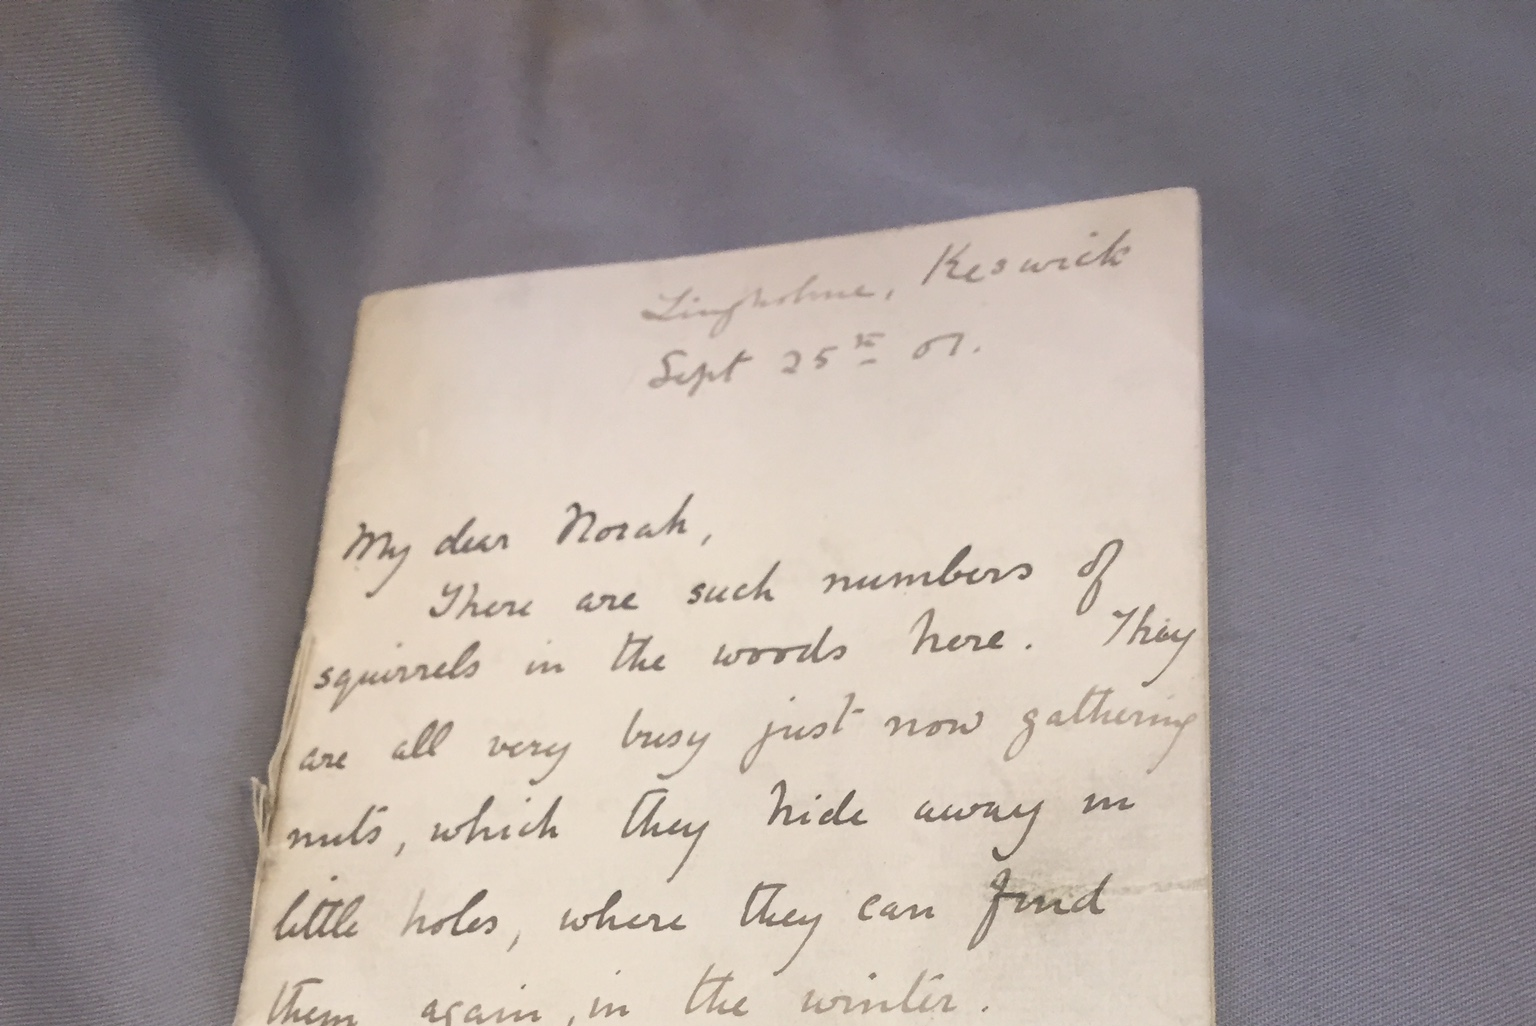 Lingholme, Keswick
Sept 25th 01.
My dear Norah,
There are such numbers of
squirrels in the woods here. They
are all very busy just now gathering
nuts, which they hide away in
little holes, where they can find
them again, in the winter.